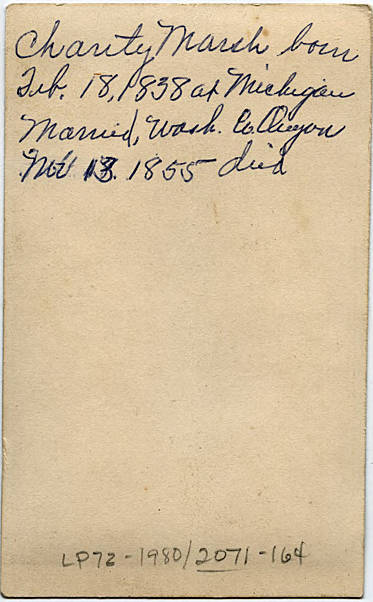 Charity Marsh born
Feb. 18, 1838 at Michigan
Married, Wash. Co Oregon
13. 1855 died
LP72-1980/2071-164